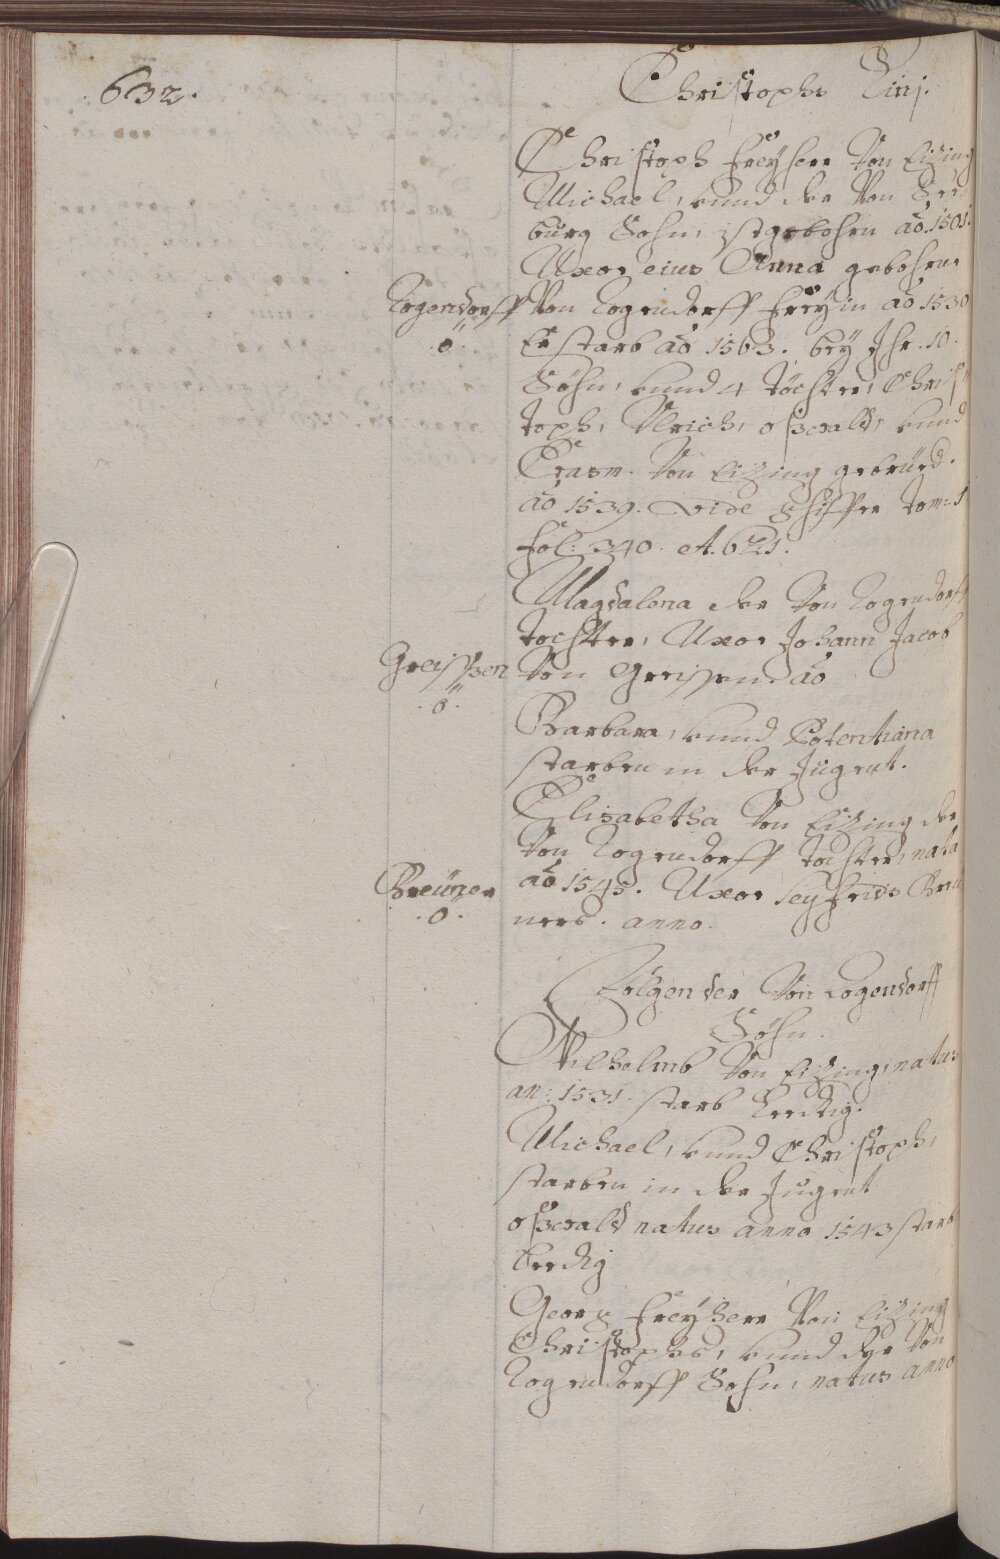 632.
Christophs Linj.
Christoph Freyherr Von Eizing
Michael, vnnd der Von See-
burg Sohn, ist gebohrn aō. 1501.
Uxor eius Anna gebohrne
Logendorff Von Logendorff Freyin aō 1530
ö. Er starb aō 1563. bey Ihr. 10.
Söhn, vnnd 4 töchter, Chris-
toph, Ulrich, oßwald, vnnd
Erasm. Von Eizing gebrüed.
aō 1539. vide Schiffer tom: 1
fol: 340. et. 621.
Magdalena der Von Logendorff
tochter, Uxor Johann Jacob
Greissen Von Greissen. aō
ö.
Barbara, vnnd Potentiana
starben in der Jugent.
Elisabetha Von Eizing der
Von Logendorff tochter, nata
Breüner aō 1545. Uxor Seyfrids Breü
.o. ners. anno.
Folgen der Von Logendorff
Söhn.
Wilhelmb Von Eizing, natus
an: 1531. starb Leedig.
Michael, vnnd Christoph,
starben in der Jugent
oßwald natus anno 1543 starb
leedig
Georg Freyherr Von Eizing
Christophs, vnnd der Von
Logendorff Sohn, natus anno